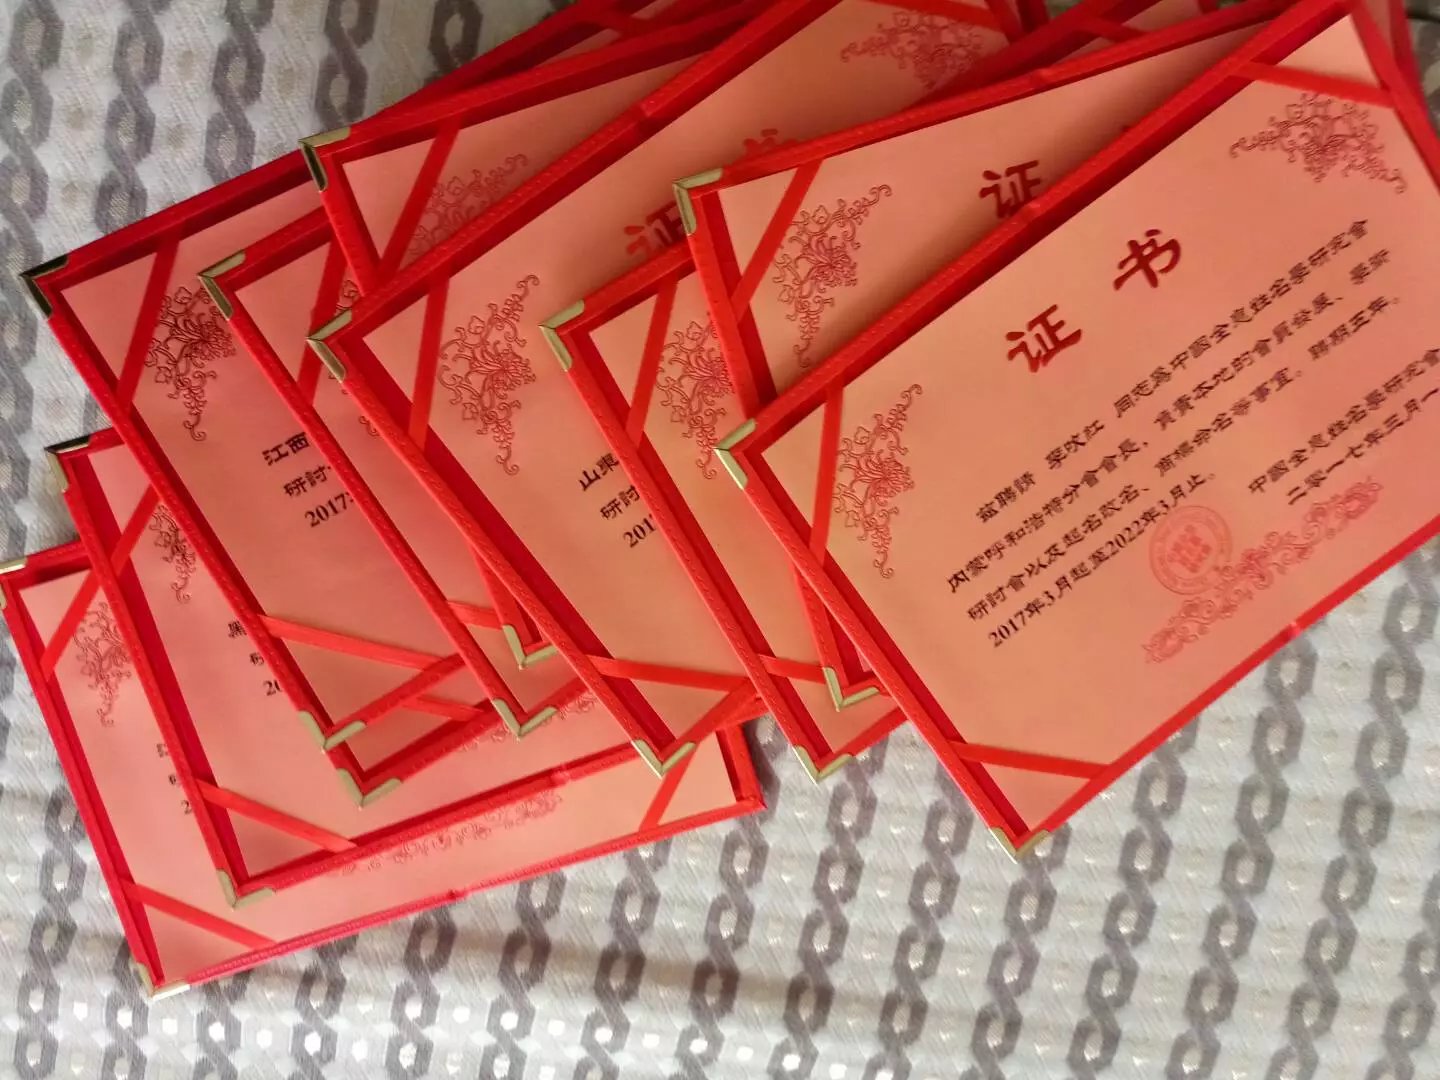 证书
兹聘請 李玫红 同志爲中國全息姓名學研究會
内蒙呼和浩特分會會長，負責本地的會員發展、學術
研討會以及起名改名、商標命名等事宜。聘期五年。
2017年3月起至2022年3月止。
中國全息姓名學研究會
二零一七年三月一
证
证
山東
研討
2017
江西
研討
2017
黑